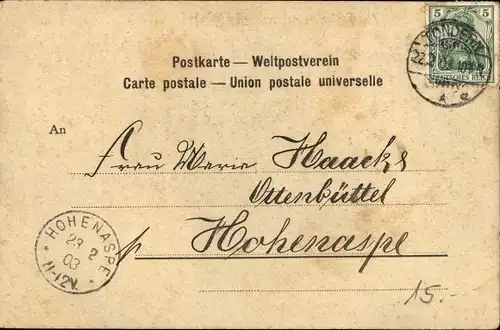 5 5
DEUTSCHES REICH
TONDERN
2.2.03
Postkarte — Weltpostverein
Carte postale — Union postale universelle
An
Frau Marie Haacks
Ottenbüttel
p Hohenaspe
* HOHENASPE *
23 2
03
11-12V
15.-